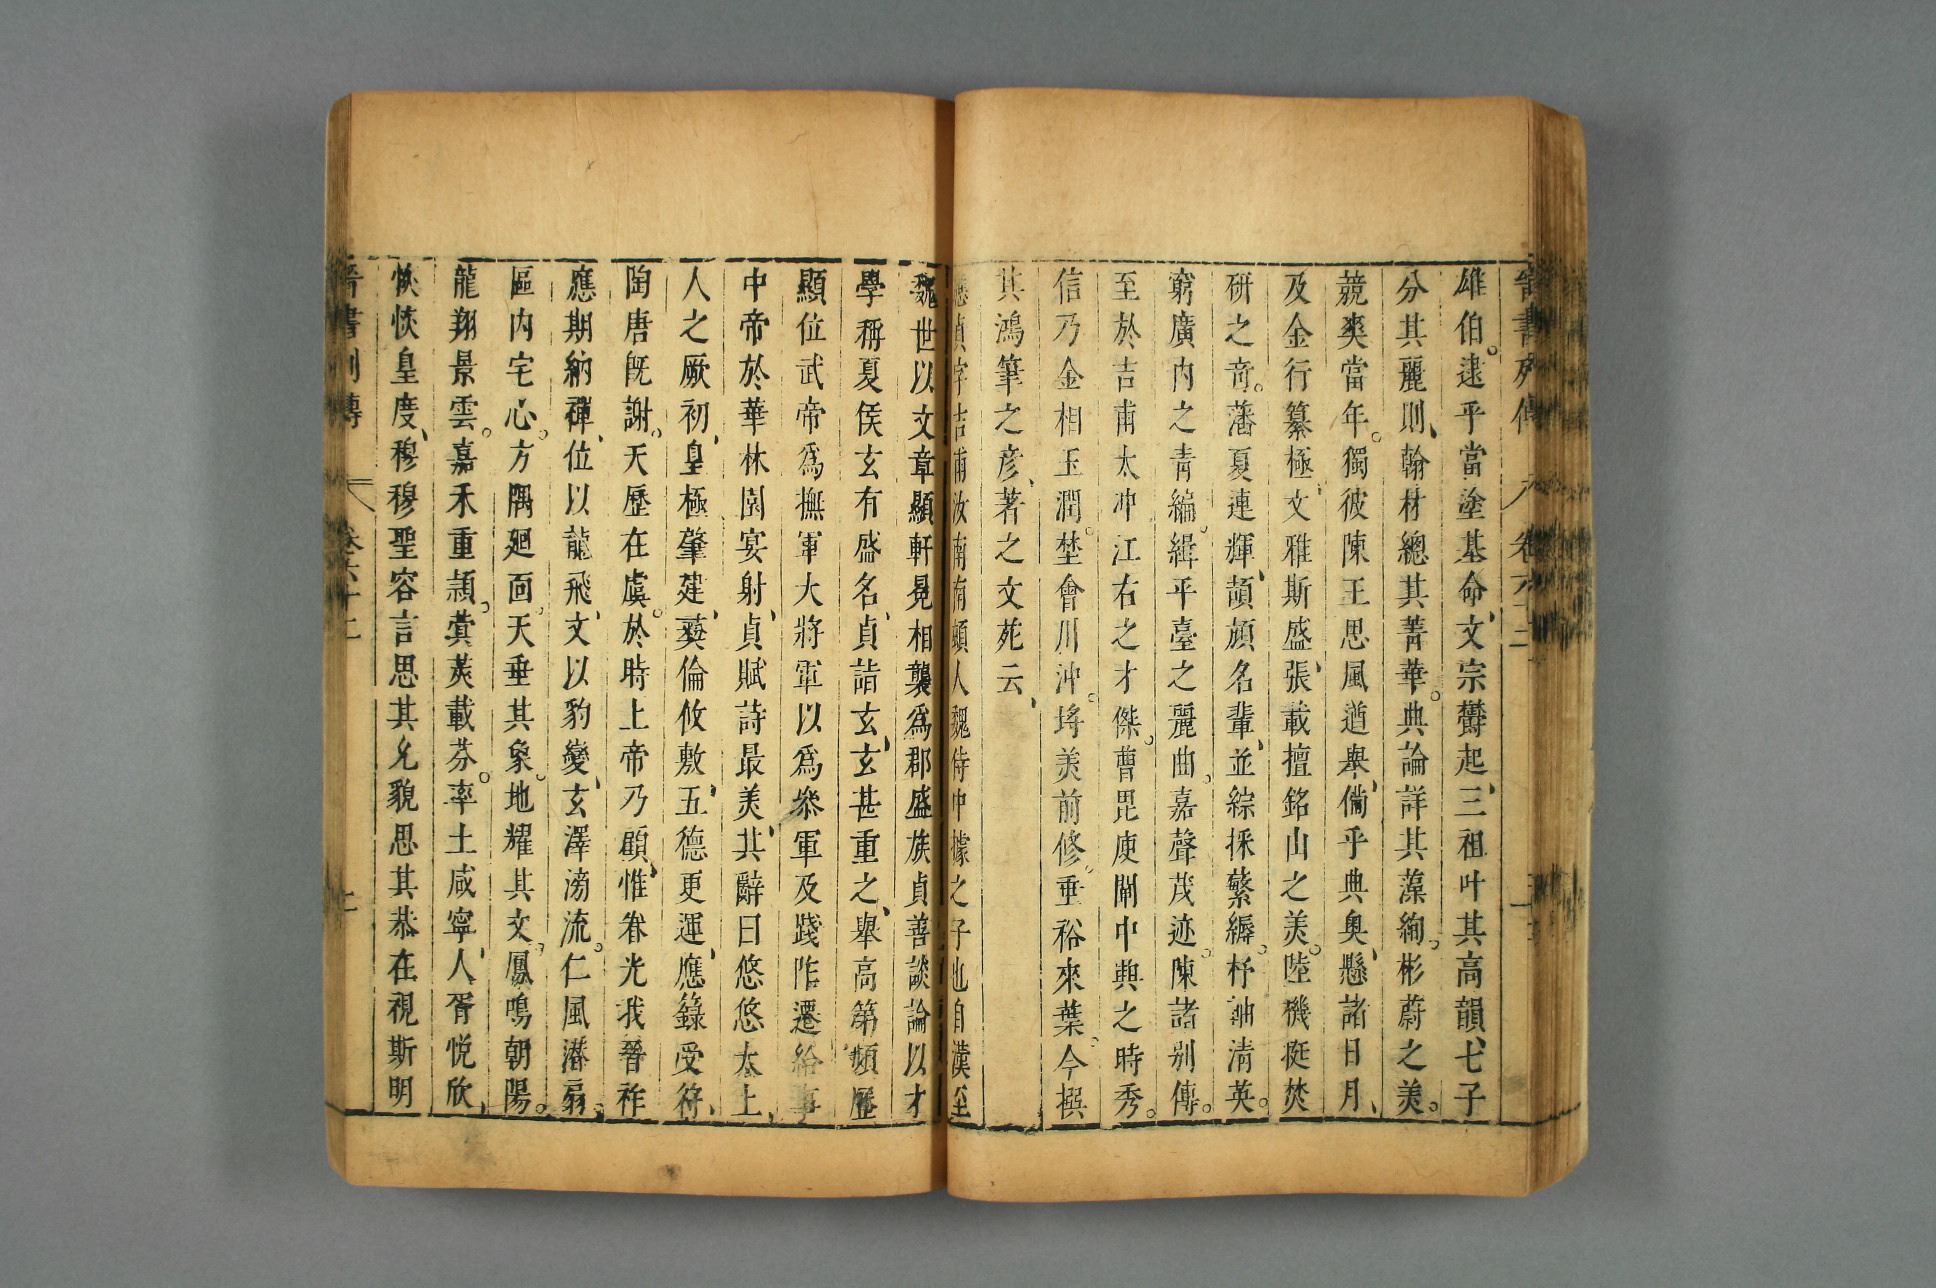 晉書列傳 卷六十二
雄伯。逮乎當塗基命、文宗欝起、三祖叶其高韻、七子
分其麗則、翰林總其菁華。典論詳其藻絢。彬蔚之美。
競爽當年。獨彼陳王思風遒舉、備乎典奧、懸諸日月、
及金行纂極、文雅斯盛、張載擅銘山之美。陸機挺焚
研之奇。藩夏連輝、頡頏名輩、並綜採繁縟。杼軸清英。
窮廣内之青編。緝平臺之麗曲。嘉聲茂迹。陳諸別傳。
至於吉甫太冲江右之才傑。曹毘庾闡中興之時秀。
信乃金相玉潤。埜會川沖。埓美前修。垂裕來葉。今撰
其鴻筆之彦、著之文苑云、
應貞字吉甫汝南南頓人魏侍中璩之子也自漢至
魏世以文章顯軒冕相襲爲郡盛族貞善談論以才
學稱夏侯玄有盛名、貞詣玄、玄甚重之、舉高第頻歷
顯位武帝爲撫軍大將軍以爲參軍及踐阼遷給事
中帝於華林園宴射、貞賦詩最美、其辭曰悠悠太上、
人之厥初、皇極肇建、彝倫攸敷、五德更運、應籙受符、
陶唐既謝。天歷在虞。於時上帝乃顧、惟眷光我晉祚
應期納禪、位以龍飛、文以豹變、玄澤滂流。仁風潛扇。
區内宅心。方隅廻面。天垂其象。地耀其文。鳳鳴朝陽。
龍翔景雲。嘉禾重穎。蓂莢載芬。率土咸寧、人胥悅欣、
恢恢皇度、穆穆聖容言思其允貌思其恭在視斯明
晉書列傳 卷六十二